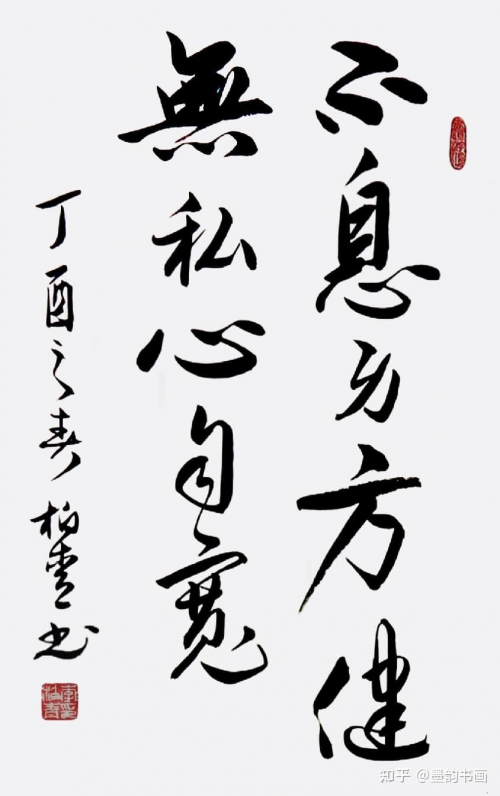 不息身方健
無私心自寬
丁酉之春 柏书
知乎 @墨韵书画